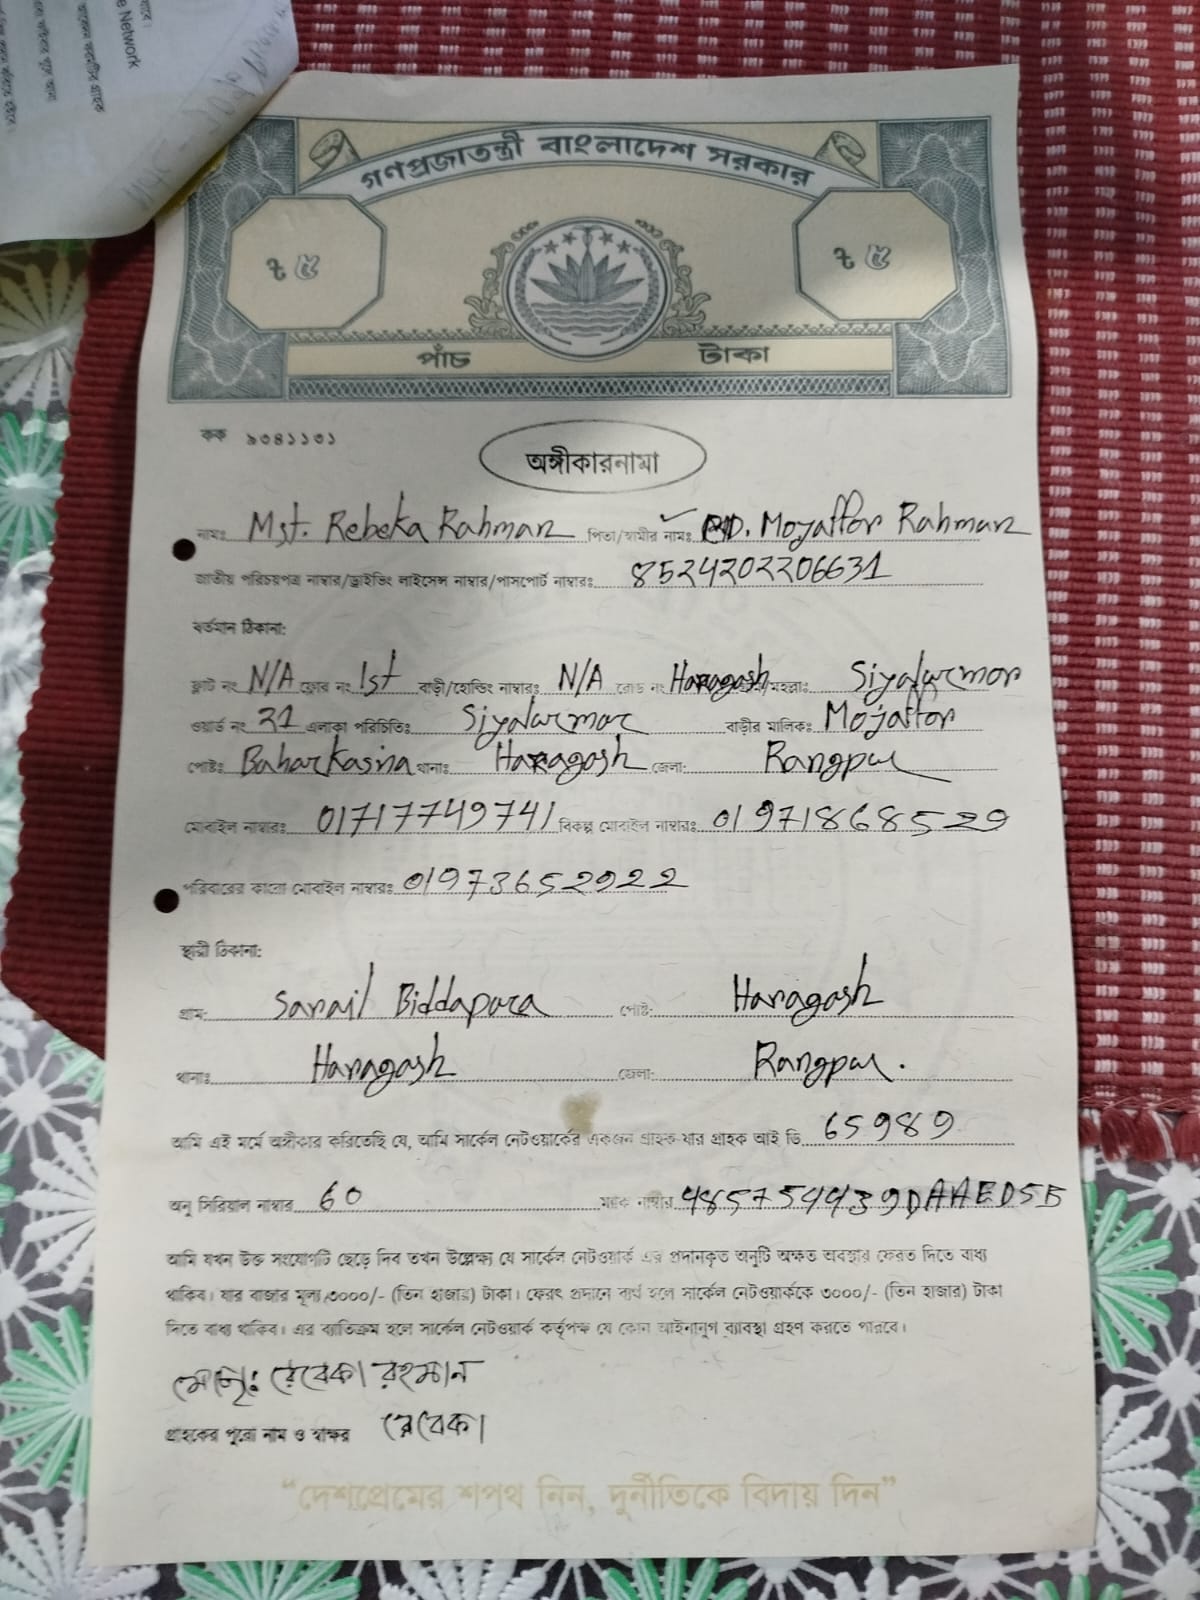 গণপ্রজাতন্ত্রী বাংলাদেশ সরকার
৳ ৫ ৳ ৫
পাঁচ টাকা
কক ৯৩৪১১৩১
অঙ্গীকারনামা
নামঃ Mst. Rebeka Rahman পিতা/স্বামীর নামঃ MD. Mojaffor Rahman
জাতীয় পরিচয়পত্র নাম্বার/ড্রাইভিং লাইসেন্স নাম্বার/পাসপোর্ট নাম্বারঃ 8524202206631
বর্তমান ঠিকানা:
ফ্লাট নং N/A ফ্লোর নং 1st বাড়ী/হোল্ডিং নাম্বারঃ N/A রোড নং Haragash মহল্লাঃ Siyalurmor
ওয়ার্ড নং 21 এলাকা পরিচিতিঃ Siyalurmor বাড়ীর মালিকঃ Mojaffor
পোষ্টঃ Baharkasna থানাঃ Haragash জেলা: Rangpur
মোবাইল নাম্বারঃ 01717749741 বিকল্প মোবাইল নাম্বারঃ 01971868529
পরিবারের কারো মোবাইল নাম্বারঃ 01973652922
স্থায়ী ঠিকানা:
গ্রাম: Sarail Biddapara পোষ্ট: Haragash
থানাঃ Haragash জেলা: Rangpur.
আমি এই মর্মে অঙ্গীকার করিতেছি যে, আমি সার্কেল নেটওয়ার্কের একজন গ্রাহক যার গ্রাহক আই ডি 65989
অনু সিরিয়াল নাম্বার 60 ম্যাক নাম্বার 485754439DAAED5B
আমি যখন উক্ত সংযোগটি ছেড়ে দিব তখন উল্লেক্ষ্য যে সার্কেল নেটওয়ার্ক এর প্রদানকৃত অনুটি অক্ষত অবস্থার ফেরত দিতে বাধ্য
থাকিব। যার বাজার মূল্য ৩০০০/- (তিন হাজার) টাকা। ফেরৎ প্রদানে ব্যর্থ হলে সার্কেল নেটওয়ার্ককে ৩০০০/- (তিন হাজার) টাকা
দিতে বাধ্য থাকিব। এর ব্যতিক্রম হলে সার্কেল নেটওয়ার্ক কর্তৃপক্ষ যে কোন আইনানুগ ব্যাবস্থা গ্রহণ করতে পারবে।
মোছাঃ রেবেকা রহমান
গ্রাহকের পুরো নাম ও স্বাক্ষর রেবেকা
“দেশপ্রেমের শপথ নিন, দুর্নীতিকে বিদায় দিন”